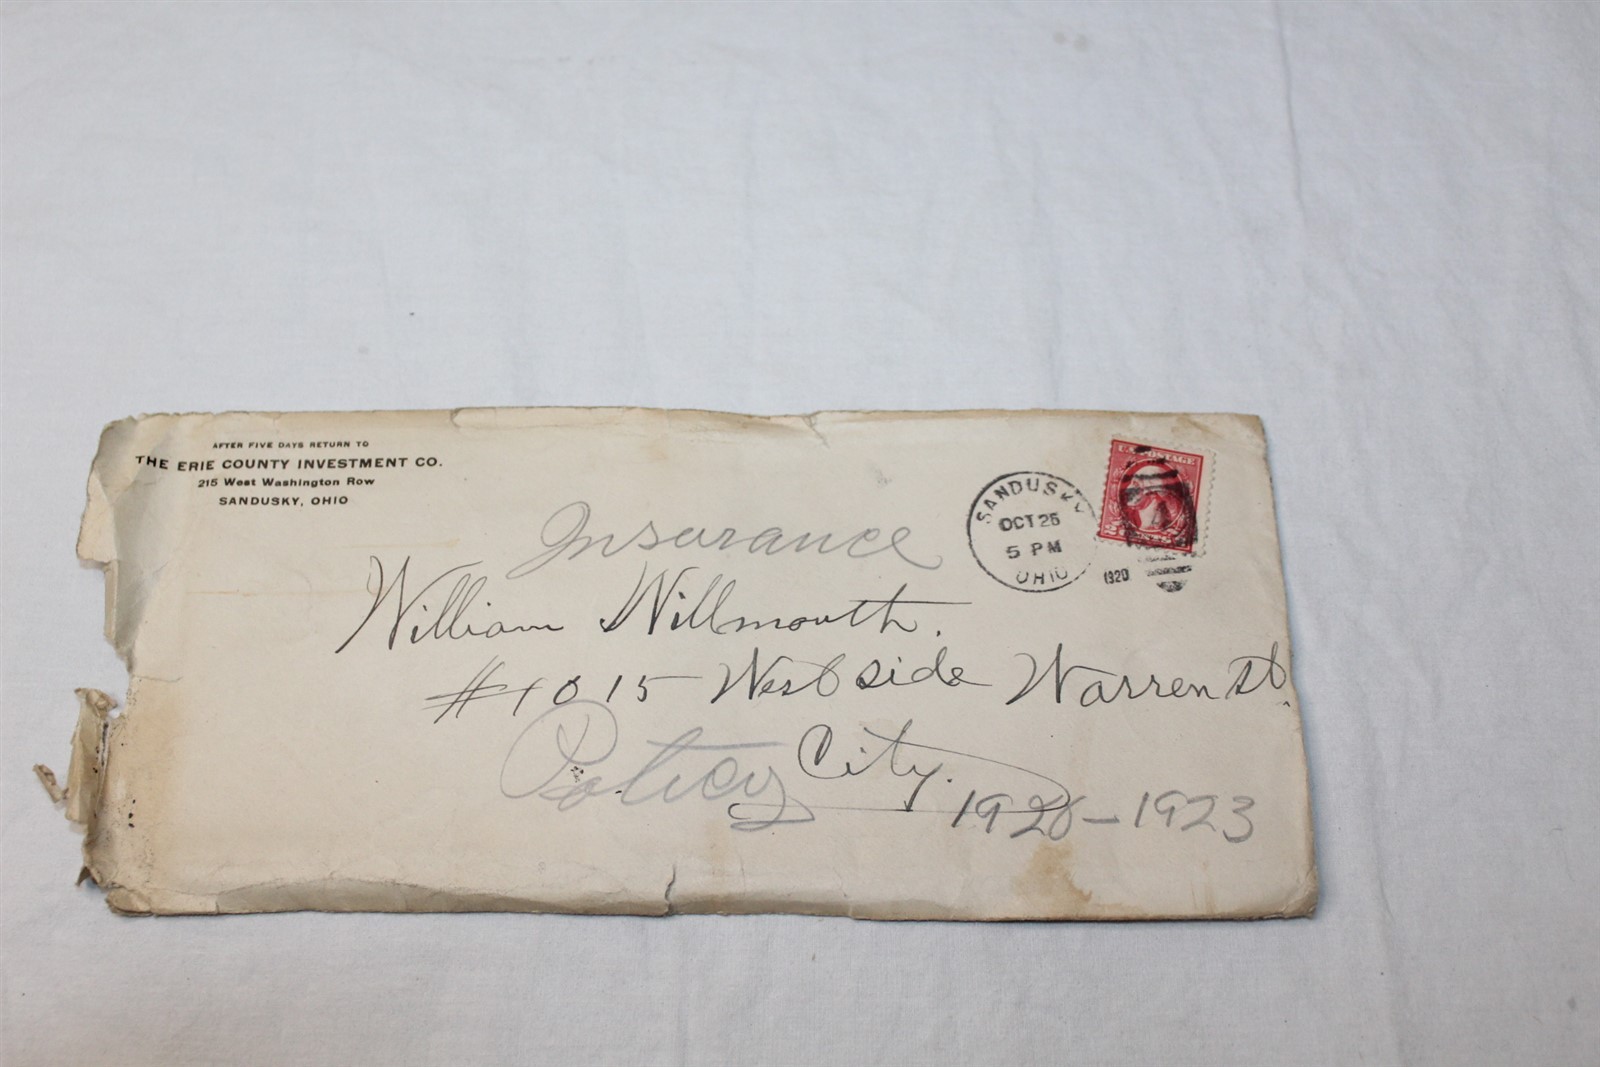 AFTER FIVE DAYS RETURN TO
THE ERIE COUNTY INVESTMENT CO.
215 West Washington Row
SANDUSKY, OHIO
SANDUSKY
OCT 25
5 PM
OHIO
1920
U.S. POSTAGE
2 CENTS 2
Insurance
William Willmouth.
#1015 West side Warren st.
City.
Policy
1920-1923